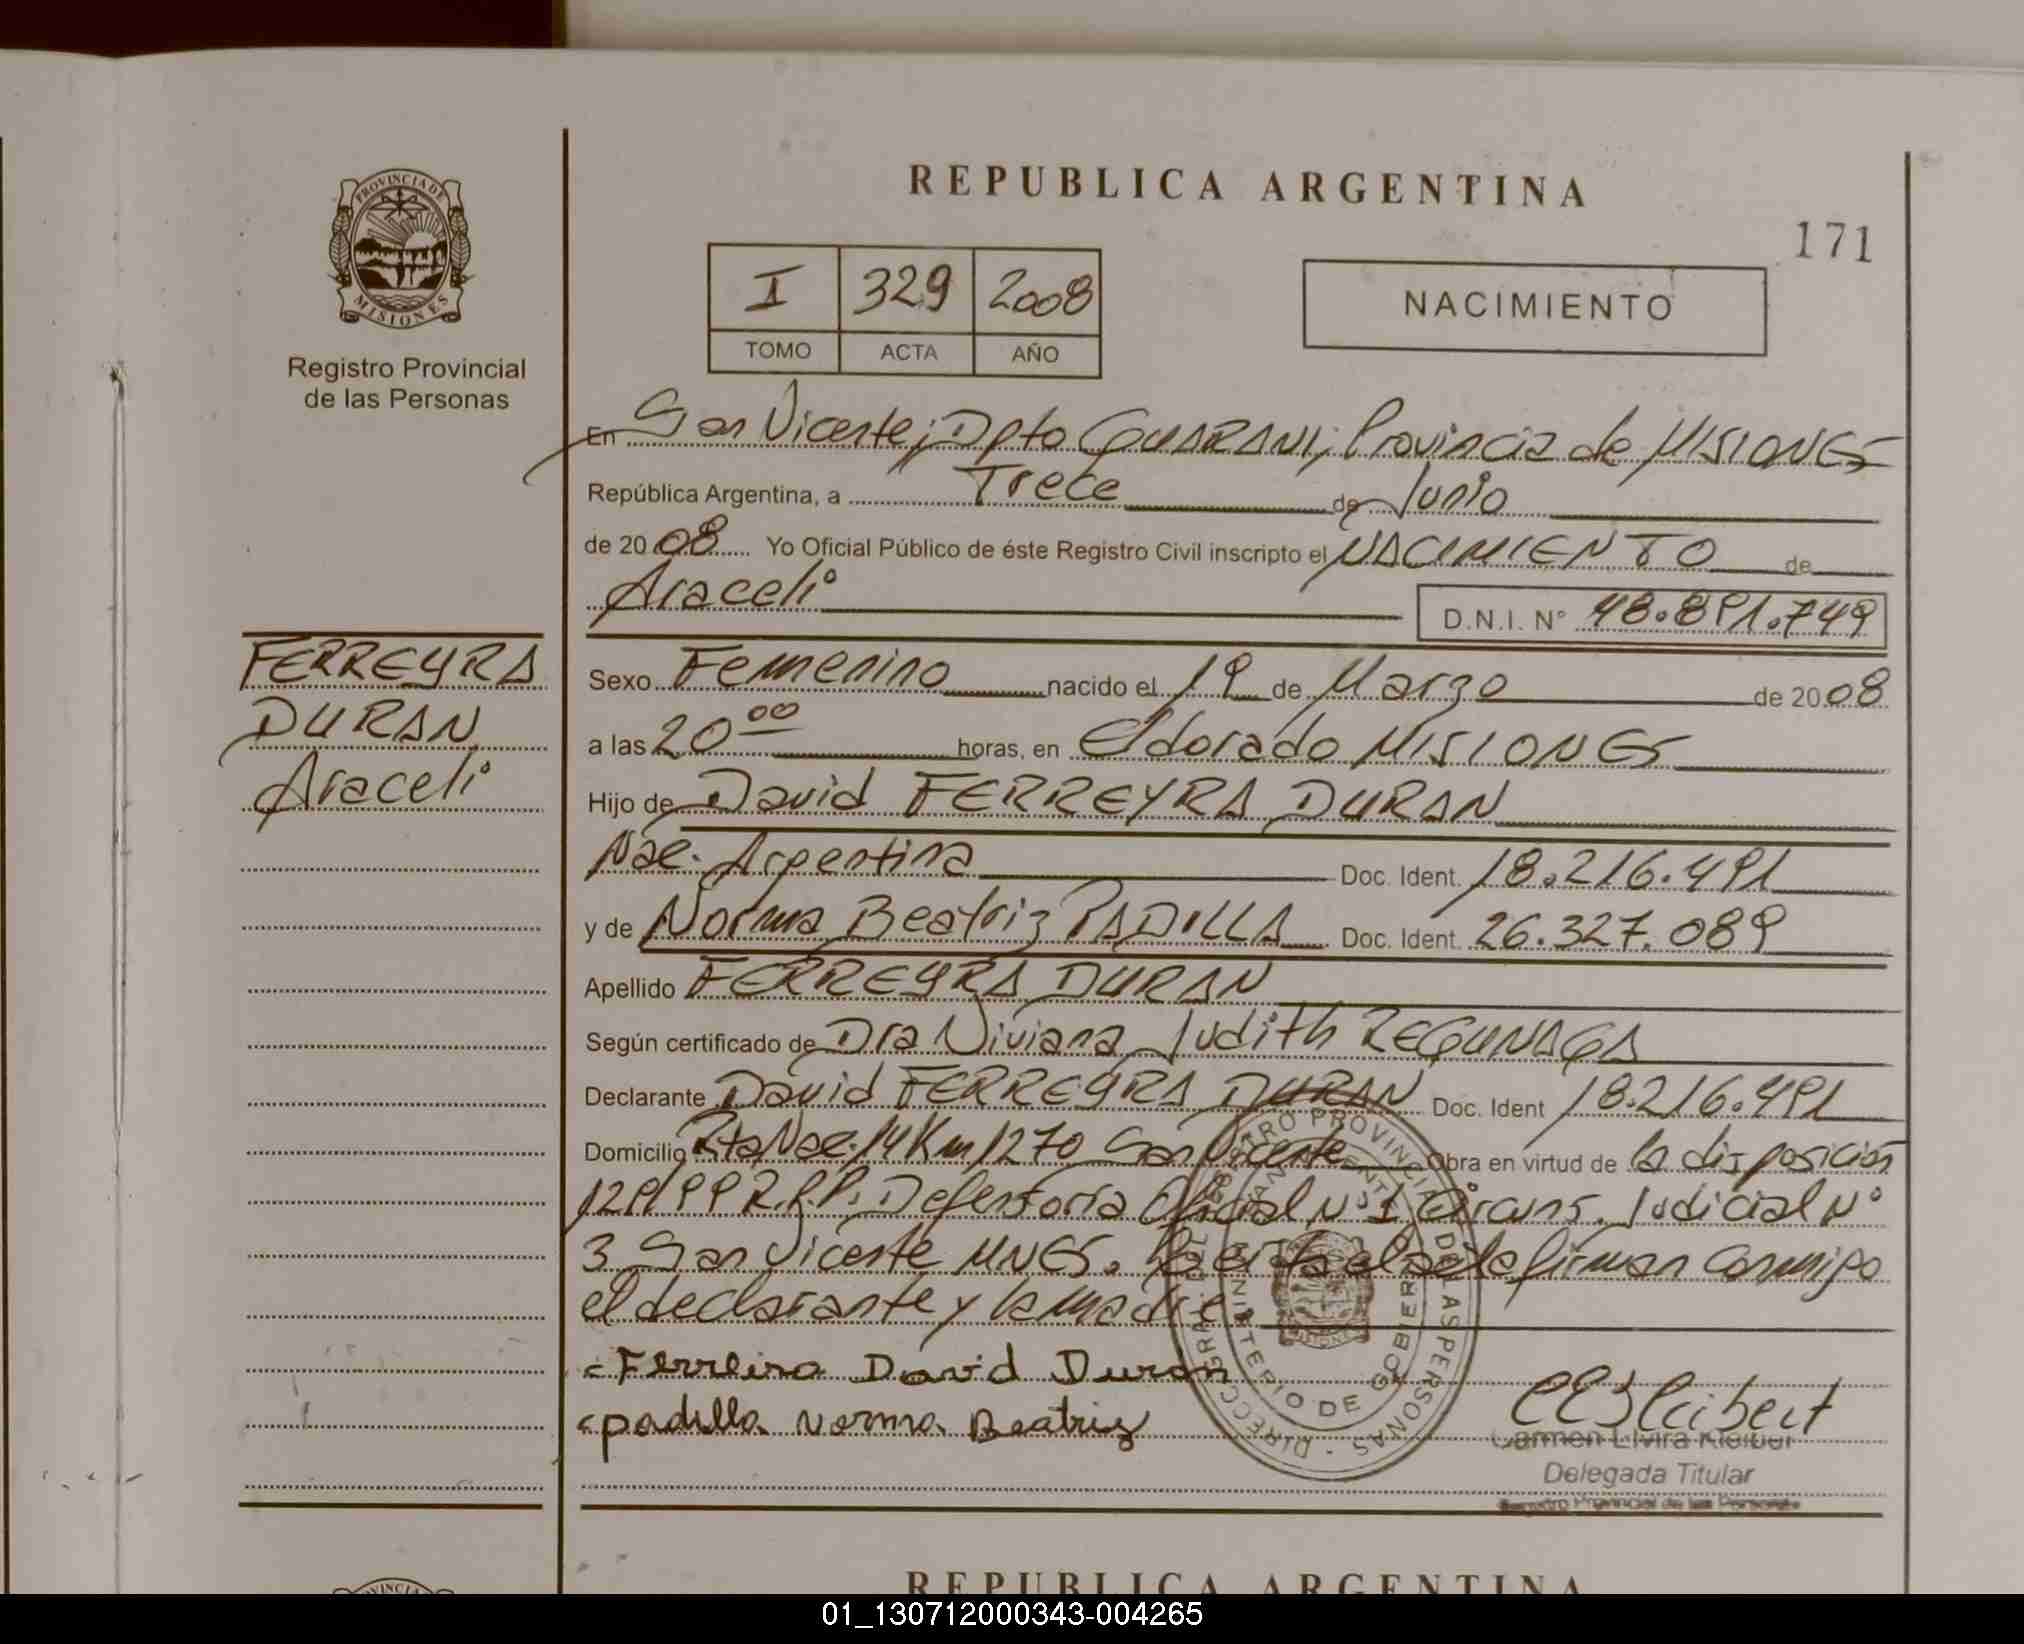 REPUBLICA ARGENTINA
171
PROVINCIA DE
MISIONES
Registro Provincial
de las Personas
I 329 2008
TOMO ACTA AÑO
NACIMIENTO
En San Vicente, Dpto GUARANI, Provincia de MISIONES
República Argentina, a Trece de Junio
de 2008 Yo Oficial Público de éste Registro Civil inscripto el NACIMIENTO de
Araceli D.N.I. Nº 48.891.749
FERREYRA
DURAN
Araceli
Sexo Femenino nacido el 19 de Marzo de 2008
a las 20 00 horas, en Eldorado MISIONES
Hijo de David FERREYRA DURAN
Nac. Argentina Doc. Ident. 18.216.491
y de Norma Beatriz PADILLA Doc. Ident. 26.327.089
Apellido FERREYRA DURAN
Según certificado de Dra Viviana Judith REGUNAGA
Declarante David FERREYRA DURAN Doc. Ident 18.216.491
Domicilio Rta Nac. 14 Km 1270 San Vicente Obra en virtud de la disposición
R.P.P. Defensoría Oficial Nº 1 Circuns. Judicial Nº
3 San Vicente MNES. firman conmigo
el declarante y la madre.
Ferreira David Duran
padilla Norma Beatriz
Carmen Elvira Kleibert
Delegada Titular
Registro Provincial de las Personas
REPUBLICA ARGENTINA
01_130712000343-004265